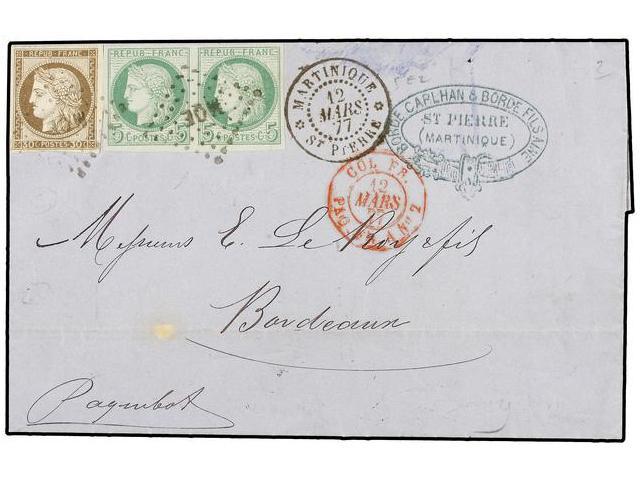 REPUB. FRANC.
30 C POSTES 30 C
REPUB. FRANC.
5 C POSTES 5 C
REPUB. FRANC.
5 C POSTES 5 C
MQE
MARTINIQUE
12
MARS
77
ST PIERRE
BORDE CARLHAN & BORDE FILS AINÉ
ST PIERRE
(MARTINIQUE)
COL. FR.
12
MARS
77
A Nº 2
Messieurs E. Le fils
Bordeaux
Paquebot